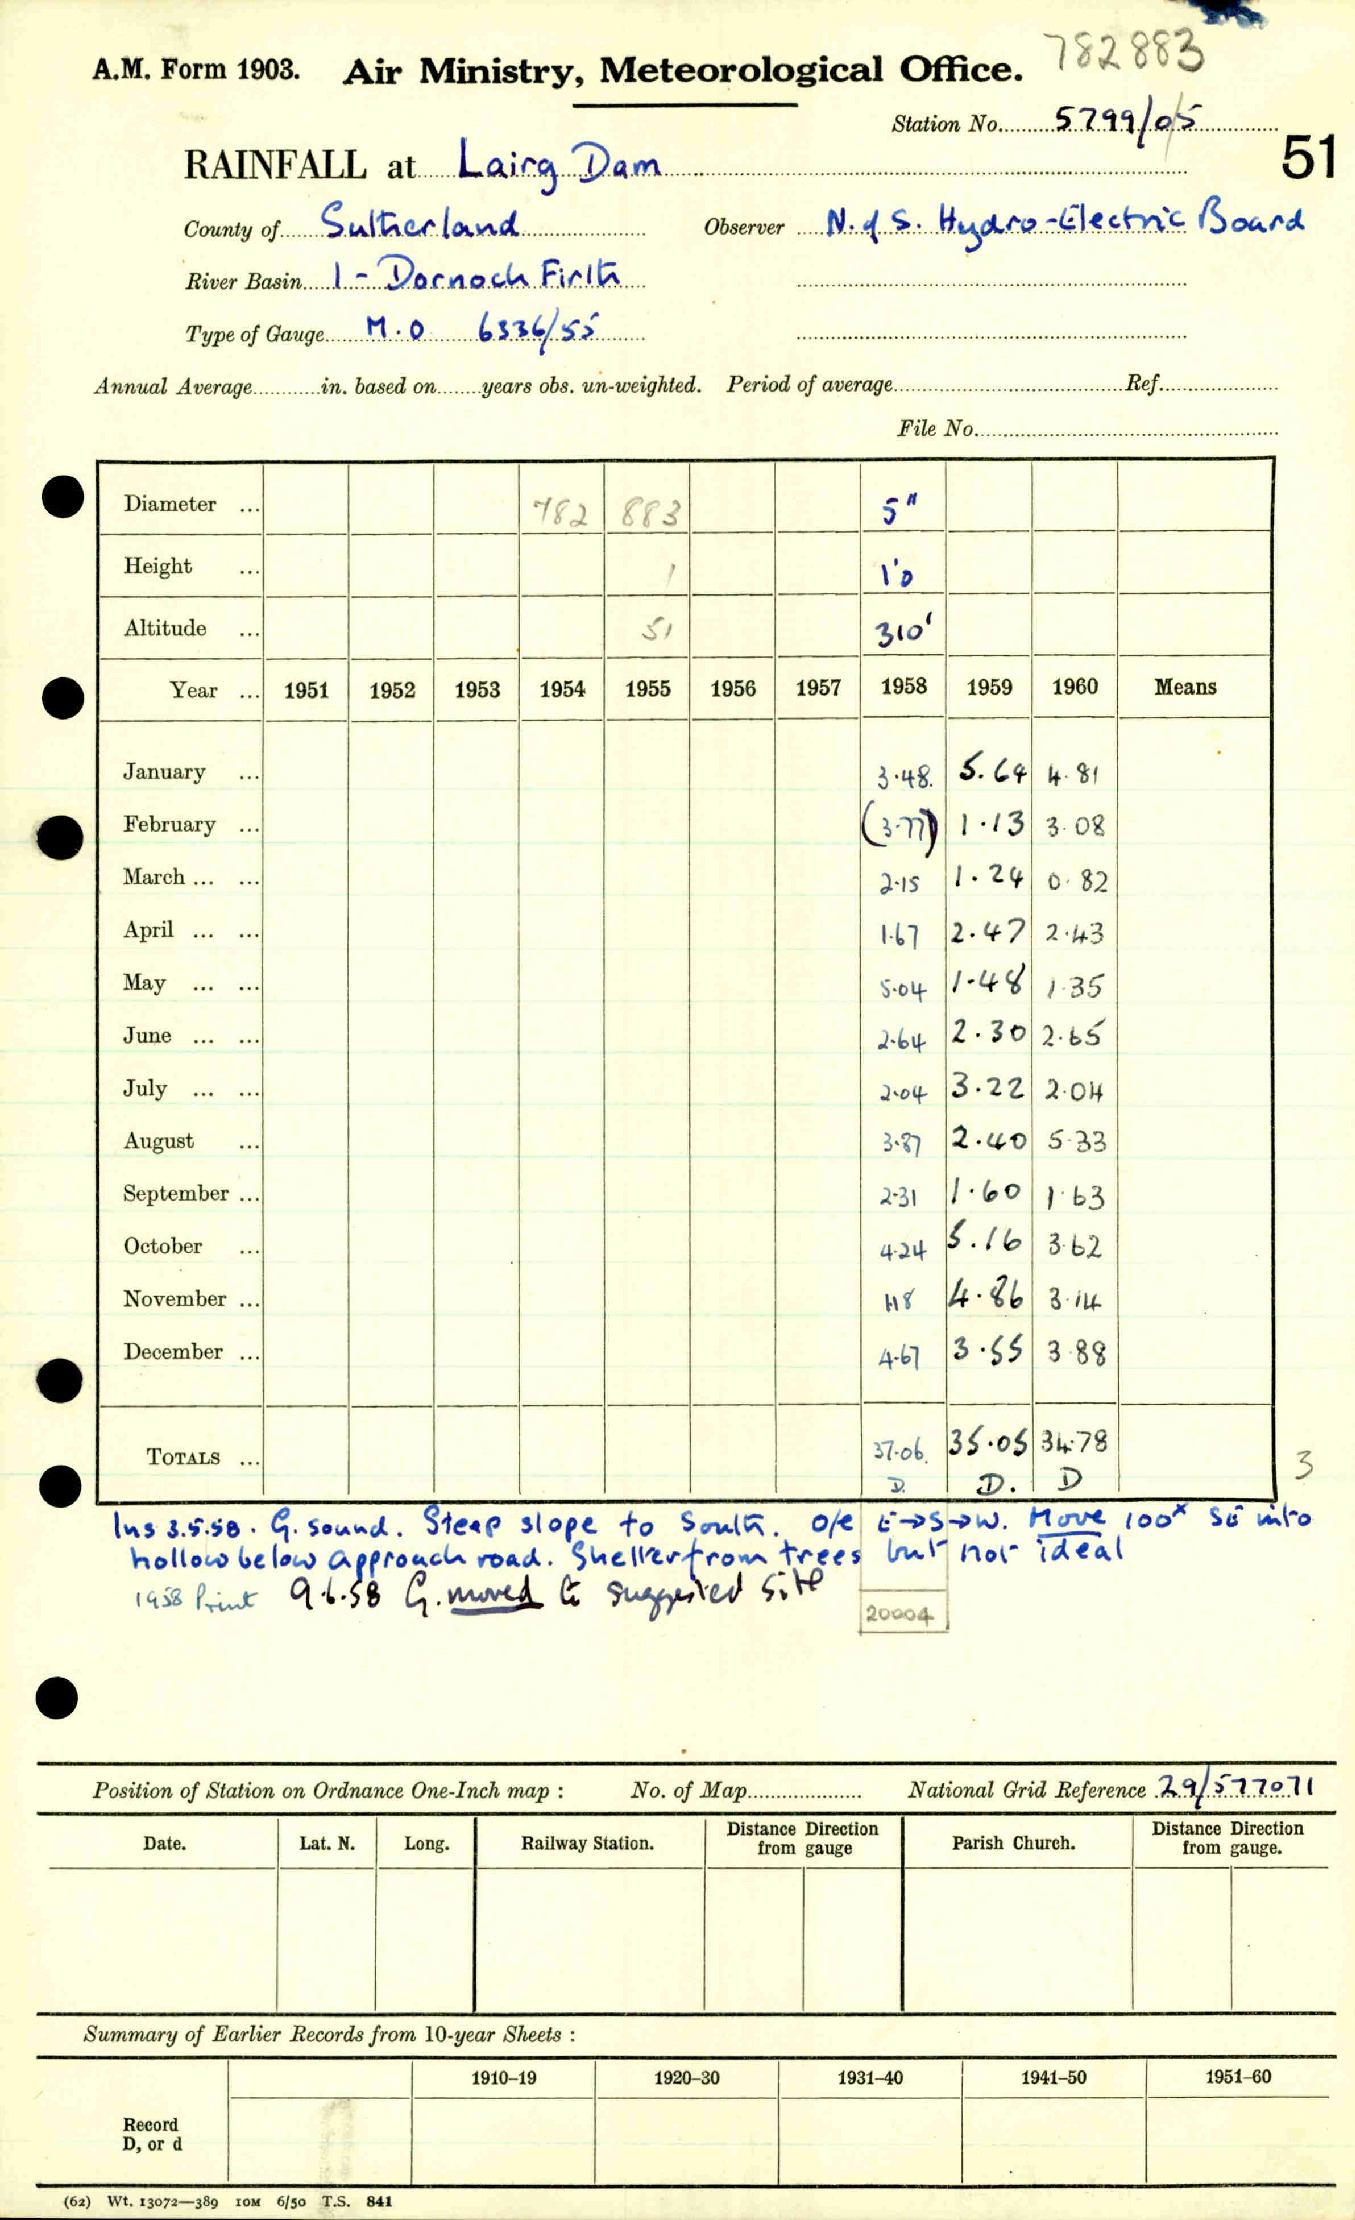 782883
A.M. Form 1903. Air Ministry, Meteorological Office.
Station No. 5799/05
51
RAINFALL at Lairg Dam
County of Sutherland Observer N. of S. Hydro-Electric Board
River Basin 1 - Dornoch Firth
Type of Gauge M.O 6336/55
Annual Average in. based on years obs. un-weighted. Period of average Ref.
File No.
Diameter ... 782 883 5"
Height ... 1 1'0
Altitude ... 51 310'
Year ... 1951 1952 1953 1954 1955 1956 1957 1958 1959 1960 Means
January ... 3.48. 5.64 4.81
February ... (3.77) 1.13 3.08
March ... ... 2.15 1.24 0.82
April ... ... 1.67 2.47 2.43
May ... ... 5.04 1.48 1.35
June ... ... 2.64 2.30 2.65
July ... ... 2.04 3.22 2.04
August ... 3.87 2.40 5.33
September ... 2.31 1.60 1.63
October ... 4.24 5.16 3.62
November ... 1.18 4.86 3.14
December ... 4.67 3.55 3.88
TOTALS ... 37.06. 35.05 34.78
D. D. D
3
Ins 3.5.58. G. sound. Steep slope to South. o/e E→S→W. Move 100x SE into
hollow below approach road. Shelter from trees but not ideal
1958 Print 9.6.58 G. moved to suggested site
20004
Position of Station on Ordnance One-Inch map : No. of Map National Grid Reference 29/577071
Date. Lat. N. Long. Railway Station. Distance from Direction gauge Parish Church. Distance from Direction gauge.
Summary of Earlier Records from 10-year Sheets :
1910-19 1920-30 1931-40 1941-50 1951-60
Record
D, or d
(62) Wt. 13072—389 10M 6/50 T.S. 841